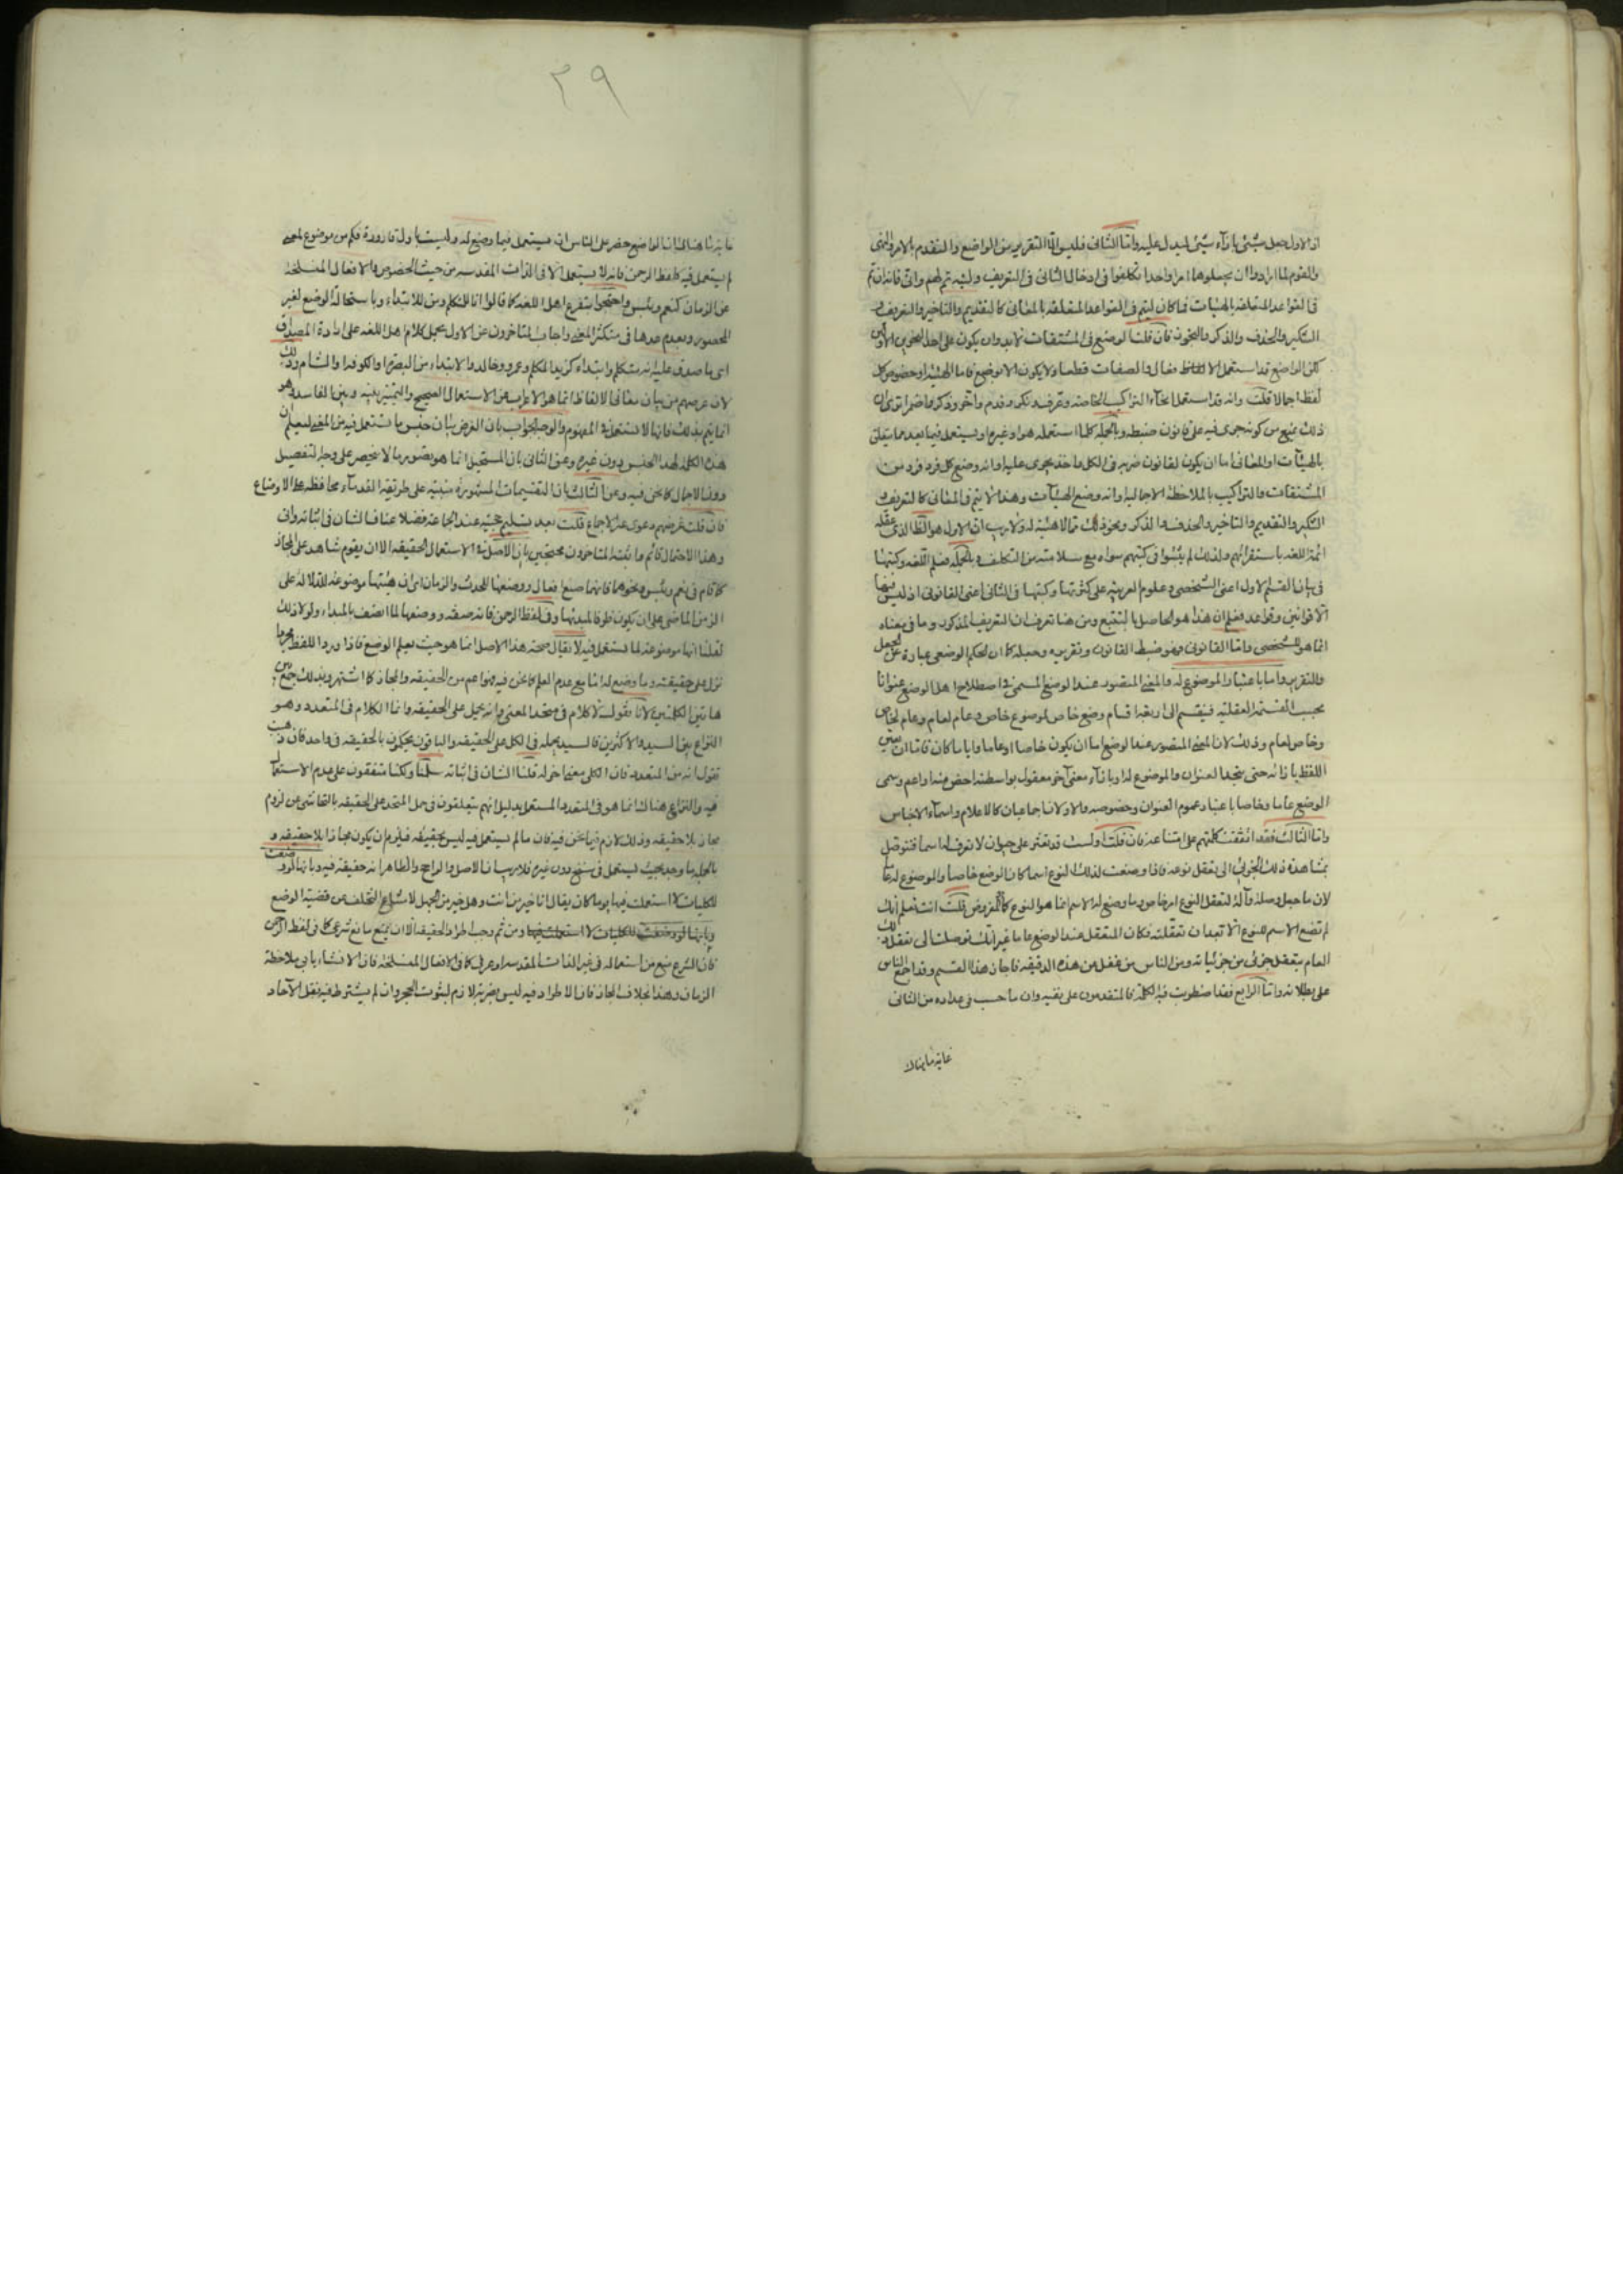 اذ الاول جعل شئ بازآء شئ ليدل عليه واما الثانى فليس الا التقرير من الواضع والتقدم بالامر والنهى
والقوم لما ارادوا ان يجعلوها امرا واحدا تكلفوا فى ادخال الثانى فى التعريف وليته تم لهم وانى فانه ان تم
فى القواعد المتعلقه بالهيئات فما كان ليتم فى القواعد المتعلقه بالمعانى كالتقديم والتاخير والتعريف و
التنكير والحذف والذكر والنحو فان قلت الوضع فى المشتقات لابد وان يكون على احد النحوين الاولين
لكن الواضع قد استعمل الالفاظ فعال والصفات قطعا ولا يكون الا بوضع فاما الهيئة او خصوص كل
لفظ اجمالا قلت وانه قد استعمل انحآء التراكيب الخاصه وعرف ونكر وقدم واخر وذكر
ذلك يمنع من كونه جرى فيه على قانون ضبطه وبالجمله كلما استعمله هو او غيره او يستعمل فيما بعد مما يتعلق
بالهيآت او المعانى اما ان يكون لقانون ضربه فى الكل واخذ يجرى عليه او انه وضع كل فرد فرد من
المشتقات والتراكيب بالملاحظة الاجماليه او انه وضع الهيآت وهذا لا يتم فى المعانى كالتعريف و
التنكير والتقديم والتاخير والحذف والذكر ونحو ذلك مما لا هيئة له ولا ريب ان الاول هو الظ الذى عقله
ائمة اللغه باستقرائهم ولذلك لم يثبتوا فى كتبهم سواه مع سلامته من التكلف وبالجمله فعلم اللغه وكتبها
فى بيان القسم الاول اعنى الشخصى وعلوم العربيه على كثرتها وكتبها فى الثانى اعنى القانونى اذ ليس فيها
الا قوانين وقواعد فعلم ان هذا هو الحاصل بالتتبع ومن هنا تعرف ان التعريف المذكور وما فى معناه
انما هو للشخصى واما القانونى فهو ضبط القانون وتقريره وجعله كما ان الحكم الوضعى عبارة عن الجعل
والتقرير واما باعتبار الموضوع له والمعنى المتصور عند الوضع المسمى فى اصطلاح اهل الوضع عنوانا
بحسب القسمة العقليه فينقسم الى اربعة اقسام وضع خاص لموضوع خاص وعام لعام وعام لخاص
وخاص لعام وذلك لان المعنى المتصور عند الوضع اما ان يكون خاصا او عاما وايا ما كان فاما ان يعين
اللفظ بازائه حتى يتحد العنوان والموضوع له او بازآء معنى آخر معقول بواسطته اخص منه او اعم وسمى
الوضع عاما وخاصا باعتبار عموم العنوان وخصوصه والاولان اجماعيان كالاعلام واسمآء الاجناس
واما الثالث فقد اتفقت كلمتهم على امتناعه فان قلت اولست قد تعثر على حيوان لا تعرف له اسما فتتوصل
بمشاهدة ذلك الجزئى الى تعقل نوعه فاذا وضعت لذلك النوع اسما كان الوضع خاصا والموضوع له عاما
لان ما جعل وصلة وآلة لتعقل النوع امر خاص وما وضع له الاسم انما هو النوع كما هو المفروض قلت انت تعلم انك
لم تضع الاسم للنوع الا بعد ان تعقلته فكان المتعقل عند الوضع عاما غير انك توصلت الى تعقل ذلك
العام بتعقل جزئى من جزئياته ومن الناس من غفل عن هذه الدقيقه فاجاز هذا القسم وقد اجمع الناس
على بطلانه واما الرابع فقد اضطربت فيه الكلمة فالمتقدمون على نفيه وان ما حسب فى عداده من الثانى
غاية ما هناك
٣٩
غاية ما هناك ان الواضع حضر على الناس ان يستعمل فيما وضع له وليست باول قارورة فكم من موضوع لمعنى
لم يستعمل فيه كلفظ الرحمن فانه لا يستعمل الا فى الذات المقدسه من حيث الخصوص والافعال المنسلخه
عن الزمان كنعم وبئس واحتجوا بتفرع اهل اللغه كما قالوا انا للمتكلم ومن للابتداء وباستحالة الوضع لغير
المحصور وبعدم عدها فى متكثر المعنى واجاب المتاخرون عن الاول بحمل كلام اهل اللغه على ارادة المصداق
اى ما صدق عليه انه متكلم وابتداء كزيد المتكلم وعمرو وخالد والابتداء من البصره والكوفه والشام وذلك
لان غرضهم من بيان معانى الالفاظ انما هو الاعراب عن الاستعمال الصحيح والتمييز بينه وبين الفاسد وهو
انما يتم بذلك فانها لا تستعمل فى المفهوم والوجه الجواب بان الغرض بيان جنس ما تستعمل فيه من المعنى ليعلم ان
هذه الكلمة لهذا الجنس دون غيره وعن الثانى بان المستحيل انما هو تصور ما لا ينحصر على وجه التفصيل
دون الاجمال كما نحن فيه وعن الثالث بان التقسيمات المشهورة مبنيه على طريقة القدمآء محافظه على الاوضاع
فان قلت غرضهم دعوى عدم الاجماع قلت بعد تسليم حجيته عند الجماعة فضلا عنا فالشان فى اثباته وانى
وهذا الاحتمال قائم واثبته المتاخرون محتجين بان الاصل فى الاستعمال الحقيقه الا ان يقوم شاهد على المجاز
كما قام فى نعم وبئس ونحوهما فانهما صيغ افعال ووضعها للحدث والزمان اى ان هيئتها موضوعة للدلالة على
الزمن الماضى على ان يكون ظرفا لمبدئها وفى لفظ الرحمن فانه صفة ووضعها لما اتصف بالمبداء ولولا ذلك
لقلنا انها موضوعة لما تستعمل فيه لا يقال صحة هذا الاصل انما هو حيث يعلم الوضع فاذا ورد اللفظ مجردا
نزل على حقيقته وما وضع له اما مع عدم العلم كما نحن فيه فهو اعم من الحقيقه والمجاز كما اشتهر وبذلك جمع بين
هاتين الكلمتين لانا نقول لا كلام فى متحد المعنى وانه يحمل على الحقيقه وانما الكلام فى المتعدد وهو
النزاع بين السيد والاكثرين فالسيد يحمله فى الكل على الحقيقه والباقون يحكمون بالحقيقه فى واحد فان ذهبت
تقول انه من المتعدد فان الكلى معنى آخر له قلنا الشان فى اثباته سلمنا ولكنا متفقون على عدم الاستعمال
فيه والنزاع هناك انما هو فى المتعدد المستعمل بدليل انهم يتعلقون فى حمل المتحد على الحقيقه بالتحاشى عن لزوم
مجاز بلا حقيقه وذلك لازم فيما نحن فيه فان ما لم يستعمل فيه ليس بحقيقه فيلزم ان يكون مجازا بلا حقيقه و
بالجمله ما وجد بحيث يستعمل فى شئ دون غيره فلا ريب ان الاصل والراجح والظاهر انه حقيقة فيه وبانها لو وضعت
للكليات لاستعملت فيها يوما كان يقال انا خير من انت وهل خير من الجبل لامتناع التخلف عن قضية الوضع
وبانها لو وضعت للكليات لاستعملت فيها ومن ثم وجب اطراد الحقيقه الا ان يمنع مانع شرعى كما فى لفظ الرحمن
فان الشرع منع من استعماله فى غير الذات المقدسه او عرفى كما فى الافعال المنسلخه فان الانشاء يابى ملاحظة
الزمان وهذا بخلاف المجاز فان الاطراد فيه ليس بضربة لازم لثبوت الحجر وان لم يشترط فيه نقل الآحاد